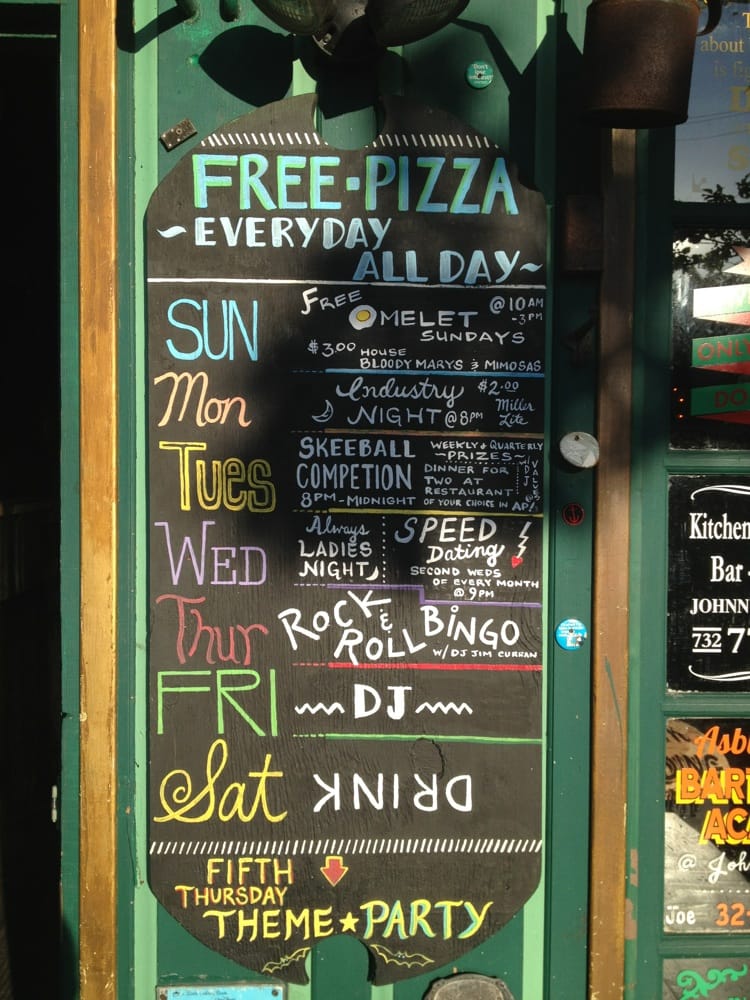 FREE·PIZZA
~EVERYDAY
ALL DAY~
SUN
FREE OMELET SUNDAYS
@10AM
-3PM
$3.00 HOUSE BLOODY MARYS & MIMOSAS
Mon
Industry NIGHT @8PM
$2.00 Miller Lite
Tues
SKEEBALL COMPETION
8PM-MIDNIGHT
WEEKLY & QUARTERLY
~PRIZES~
DINNER FOR TWO AT RESTAURANT
OF YOUR CHOICE IN AP!
WED
Always
LADIES
NIGHT
SPEED
Dating
SECOND WEDS
OF EVERY MONTH
@ 9PM
Thur
ROCK & ROLL BINGO
W/ DJ JIM CURRAN
FRI
DJ
Sat
DRINK
FIFTH
THURSDAY
THEME★PARTY
"Don't
about
ONLY
DO
Kitchen
Bar
JOHNN
732 7
Asb
BAR
AC
@ Joh
Joe 32